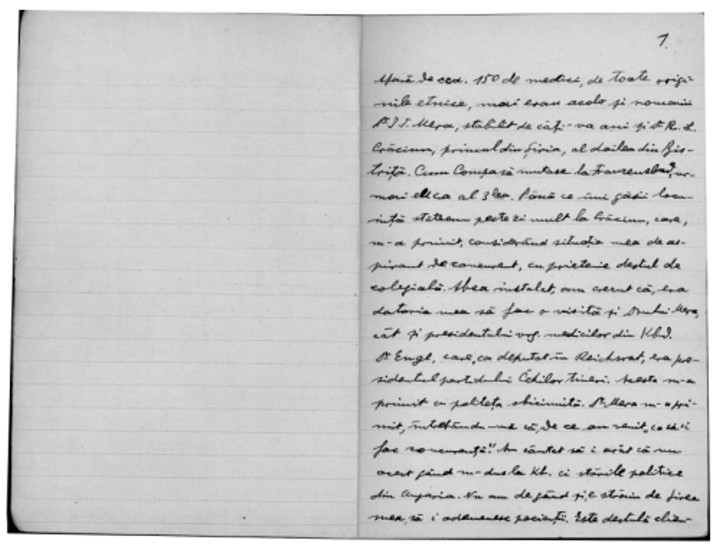 1.
Afară de cca. 150 de medici, de toate origi-
nile etnice, mai erau acolo și românii
Dr I.T. Mera, stabilit de câți-va ani și Dr R. L.
Crăciun, primul din Șiria, al doilea din Bis-
trița. Cum Compasă mutase la Franzensbad,
mai el ca al 3lea. Până ce îmi găsii locu-
ință steteam peste zi mult la Crăciun, care,
m-a primit, considerând situația mea de as-
pirant de concurent, cu prietenie destul de
colegială. Abea instalat, am crezut că, era
datoria mea să fac o visită și Drului Mera,
cât și presidentului org. medicilor din Kbd.
Dr Engl, care, ca deputat în Reichsrat, era pre-
sidentul partidului Cehilor tineri. Acesta m-a
primit cu politeța obicinuită. Dr. Mera m-a pri-
mit, întrebându-mă că, „de ce am venit, ca să-i
fac concurență!" Am căutat să-i arăt că nu
acest gând m-a dus la Kb. ci stările politice
din Ungaria. Nu am de gând și, e străin de firea
mea, să-i ademenesc pacienții. Este destulă clien-